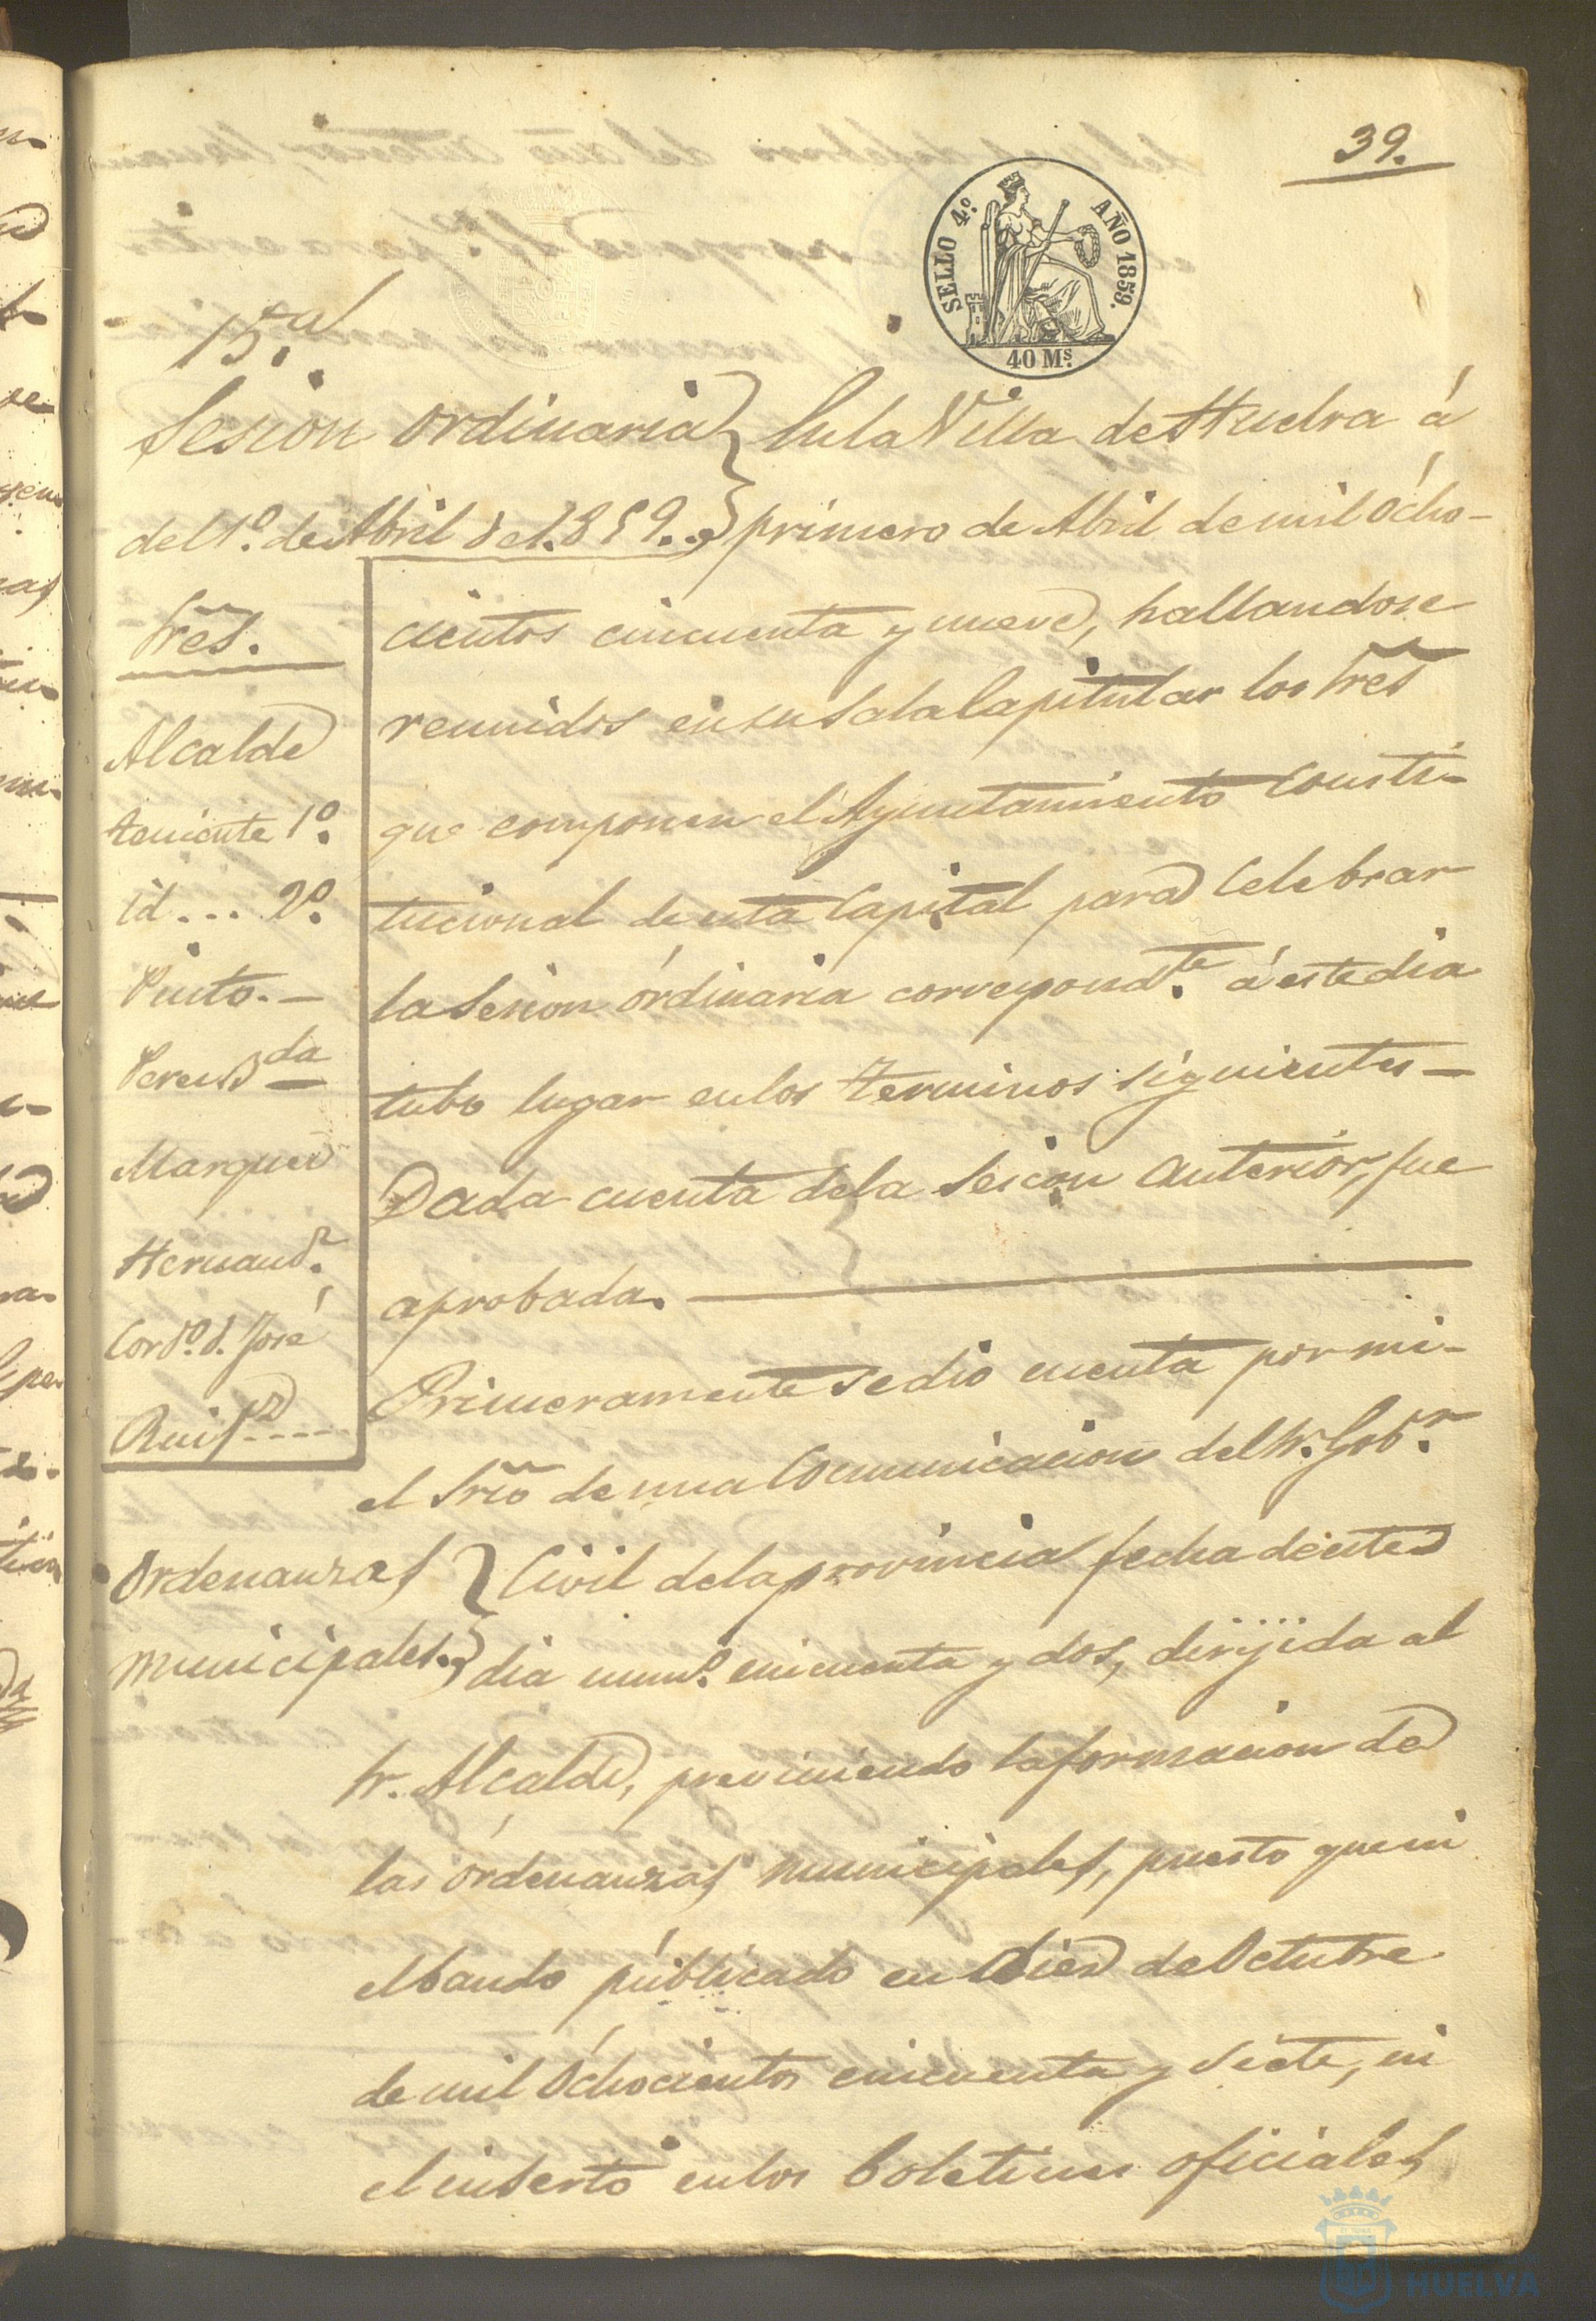 39.
SELLO 4º. AÑO 1859.
40 Ms.
15.a
Sesion ordinaria
del 1º. de Abril de 1.859.
En la Villa de Huelva á
primero de Abril de mil ócho-
Sres.
Alcalde
teniente 1º.
id... 2º.
Pinto.-
Marquez
Hernandz.
Cordº. d. José
Ruiz
cientos cincuenta y nueve, hallandose
reunidos en su Sala Capitular los Sres
que componen el Ayuntamiento Consti-
tucional de esta Capital para Celebrar
la Sesion órdinaria correspondte. á este dia
tubo lugar en los terminos siguientes-
Dada cuenta de la Sesion anterior, fue
aprobada.
Primeramente se dio cuenta por mi-
el Srio de una Comunicacion del Sr. Gobr.
Ordenanzas
municipales.
Civil de la provincia fecha de este
dia numº. cincuenta y dos, dirijida al
Sr. Alcalde, previniendo la formacion de
las órdenanzas municipales, puesto que ni
el bando públicado en diez de Octubre
de mil óchocientos cincuenta y siete, ni
el inserto en los boletines oficiales
HUELVA